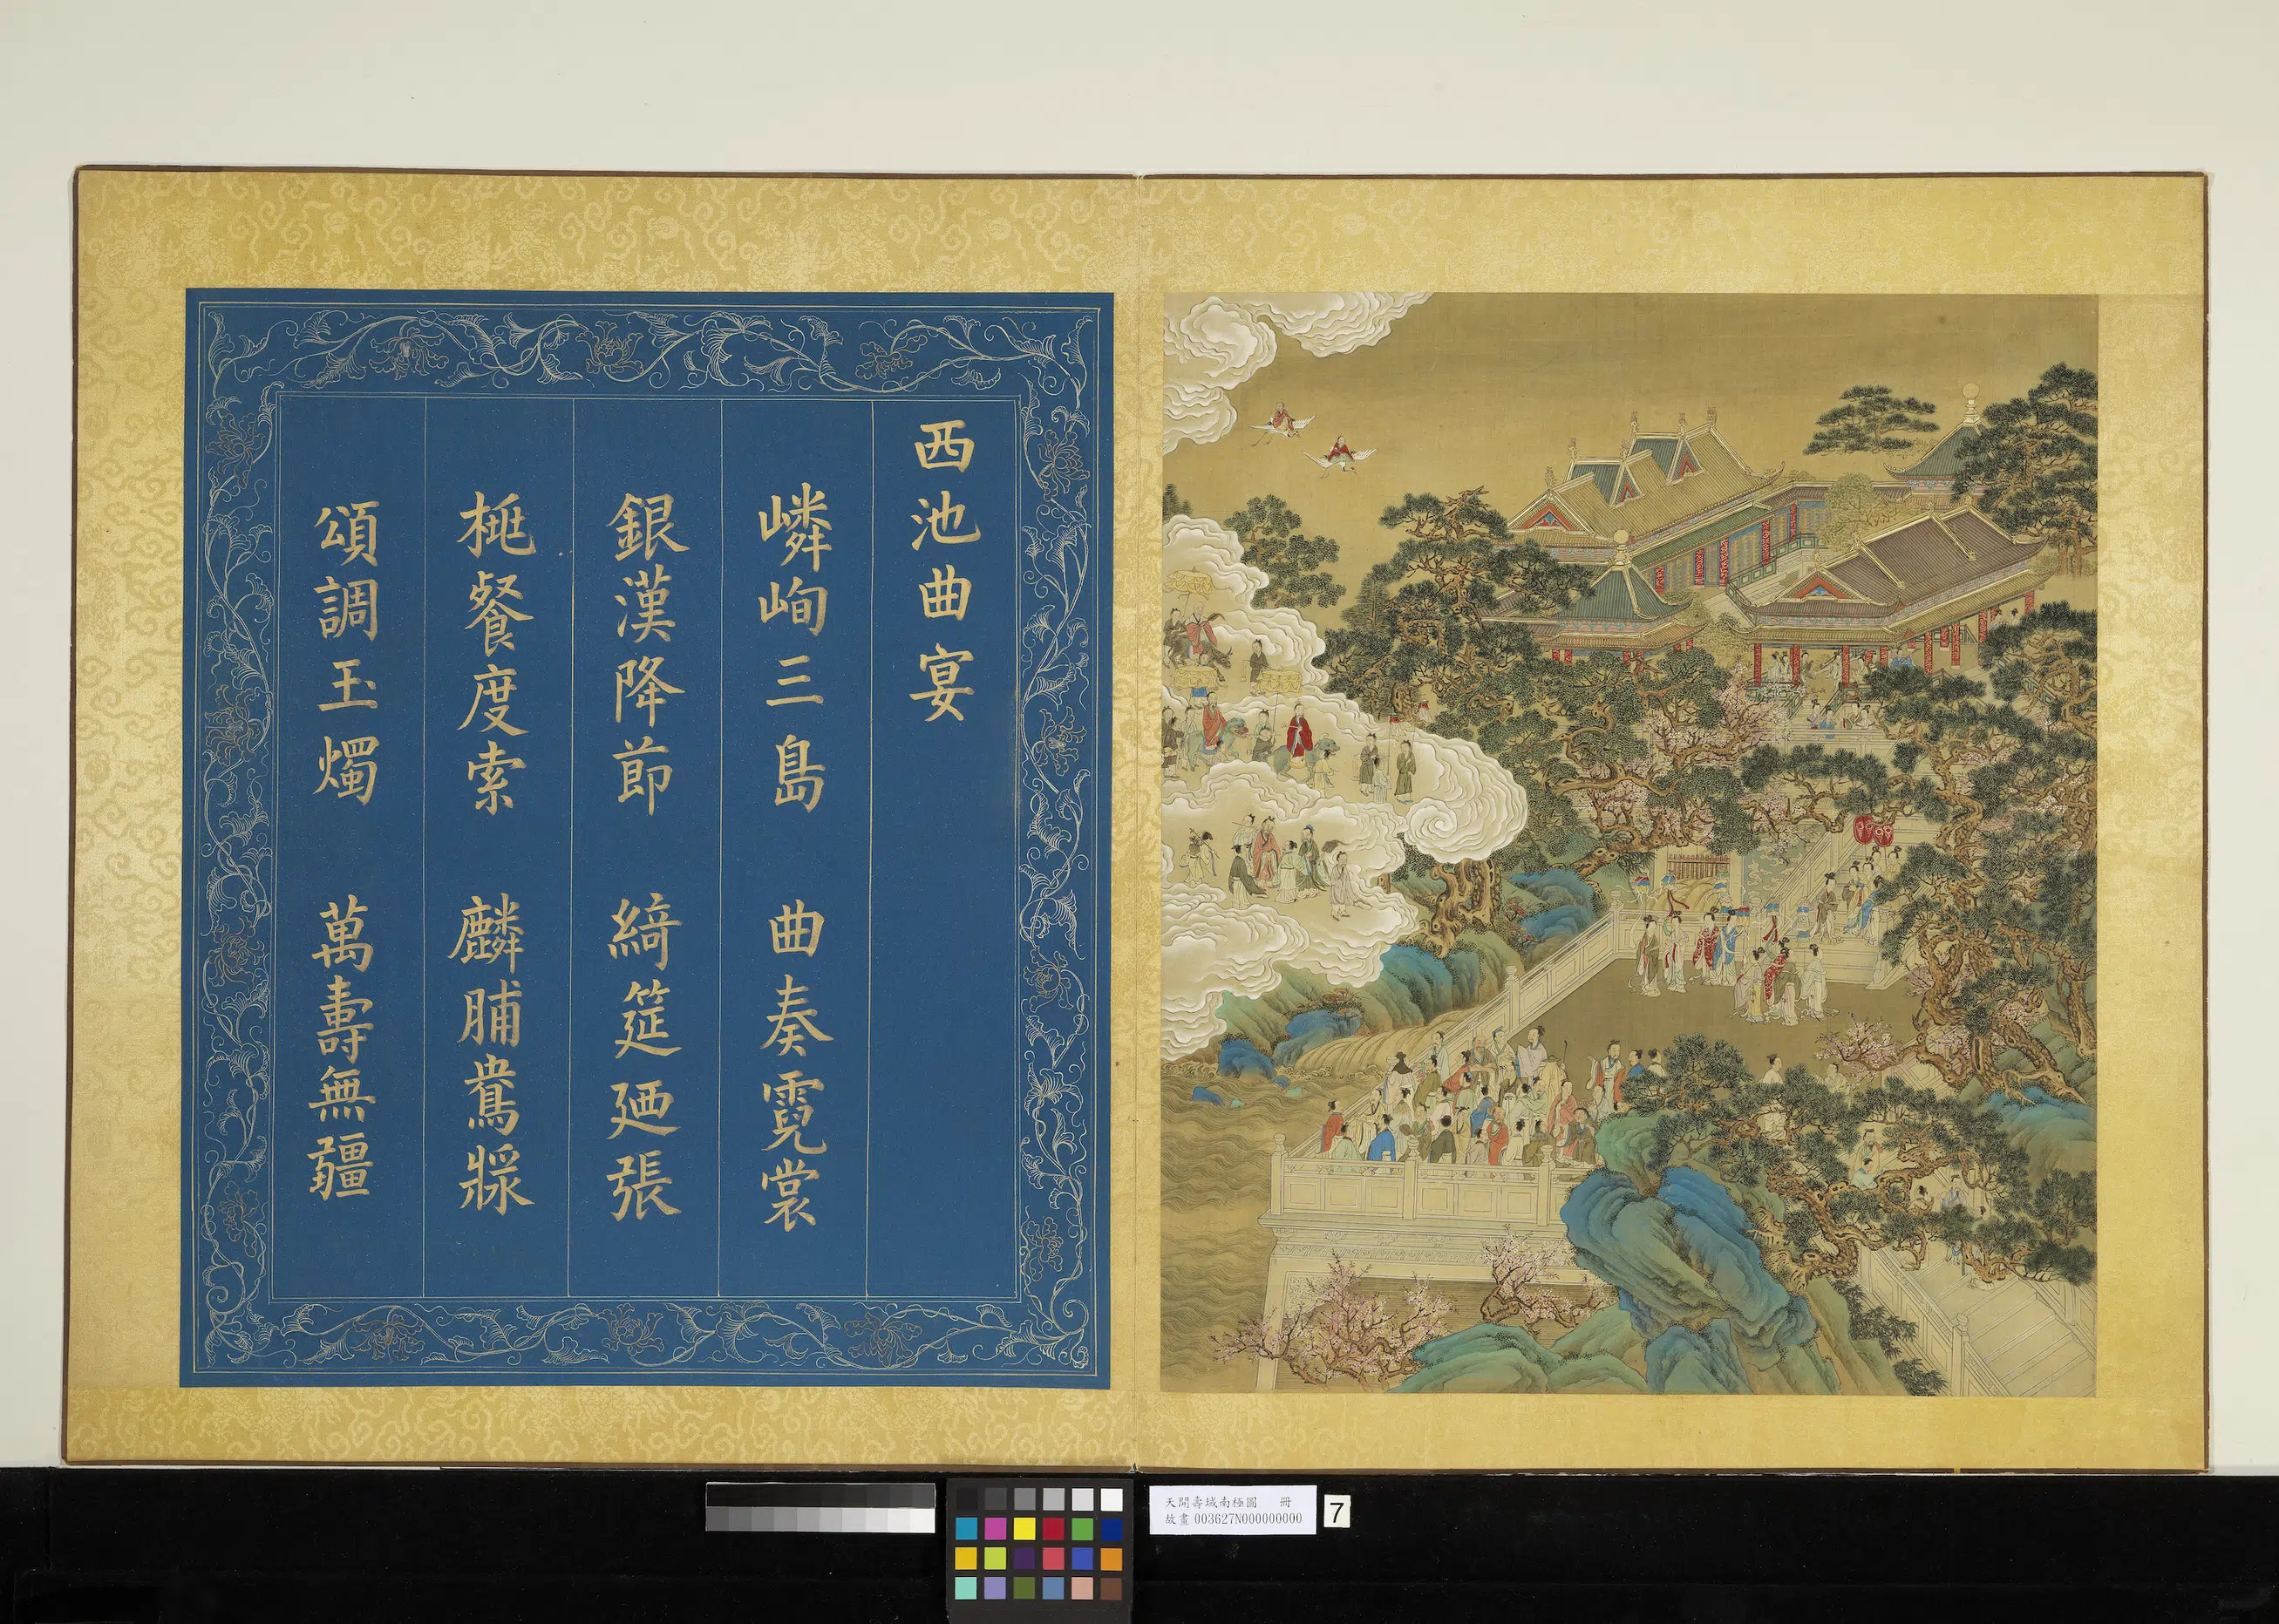 西池曲宴
嶙峋三島 曲奏霓裳
銀漢降節 綺筵廼張
桃餐度索 麟脯漿
頌調玉燭 萬壽無疆
天開壽域南極圖 冊
故畫 003627N000000000
7